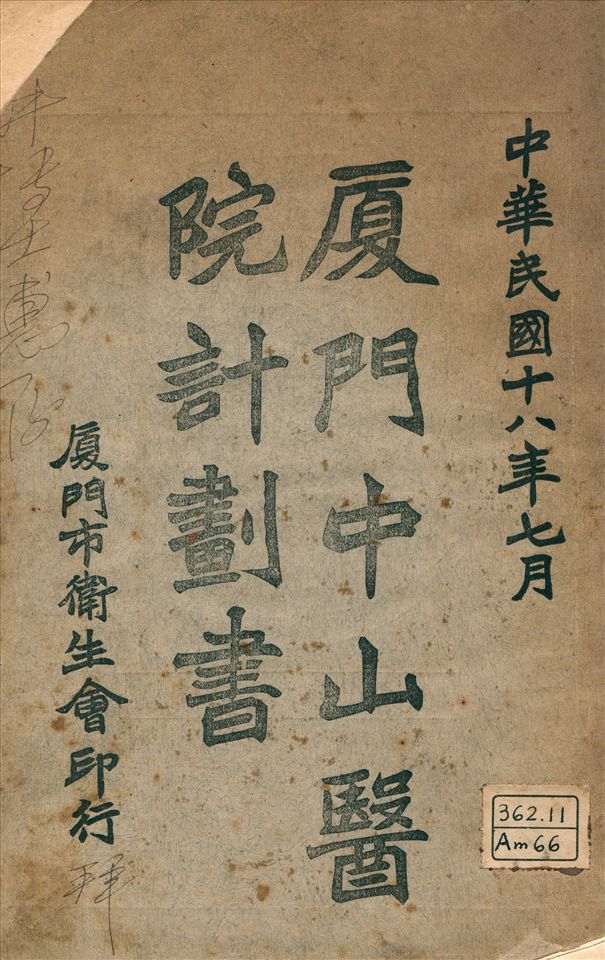 中華民國十八年七月
厦門中山醫
院計劃書
厦門市衛生會印行
362.11
Am66